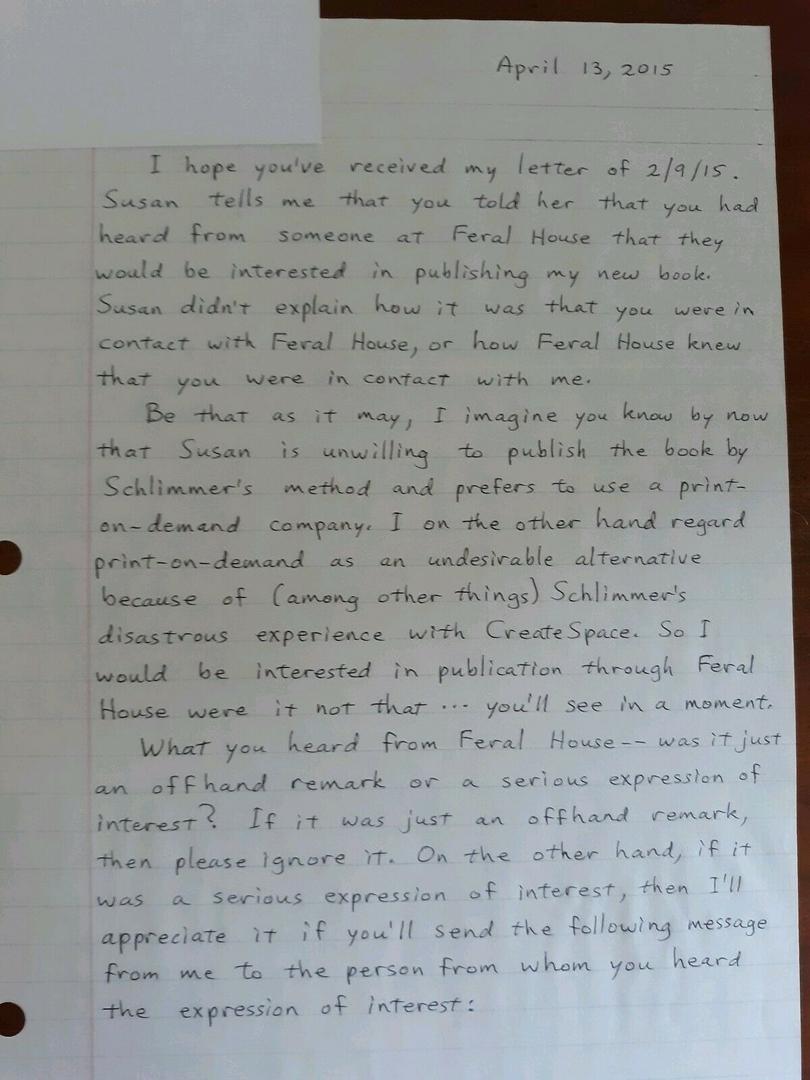 April 13, 2015
I hope you've received my letter of 2/9/15.
Susan tells me that you told her that you had
heard from someone at Feral House that they
would be interested in publishing my new book.
Susan didn't explain how it was that you were in
contact with Feral House, or how Feral House knew
that you were in contact with me.
Be that as it may, I imagine you know by now
that Susan is unwilling to publish the book by
Schlimmer's method and prefers to use a print-
on-demand company. I on the other hand regard
print-on-demand as an undesirable alternative
because of (among other things) Schlimmer's
disastrous experience with CreateSpace. So I
would be interested in publication through Feral
House were it not that ... you'll see in a moment.
What you heard from Feral House -- was it just
an offhand remark or a serious expression of
interest? If it was just an offhand remark,
then please ignore it. On the other hand, if it
was a serious expression of interest, then I'll
appreciate it if you'll send the following message
from me to the person from whom you heard
the expression of interest: